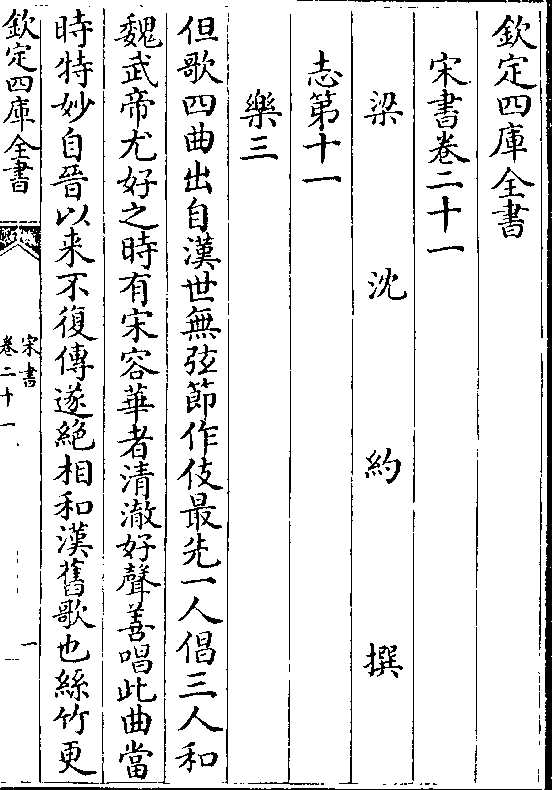 欽定四庫全書
宋書卷二十一
梁沈約撰
志第十一
樂三
但歌四曲出自漢世無弦節作伎最先一人倡三人和
魏武帝尤好之時有宋容華者清澈好聲善唱此曲當
時特妙自晉以来不復傳遂絶相和漢舊歌也絲竹更
欽定四庫全書
宋書
卷二十一
一